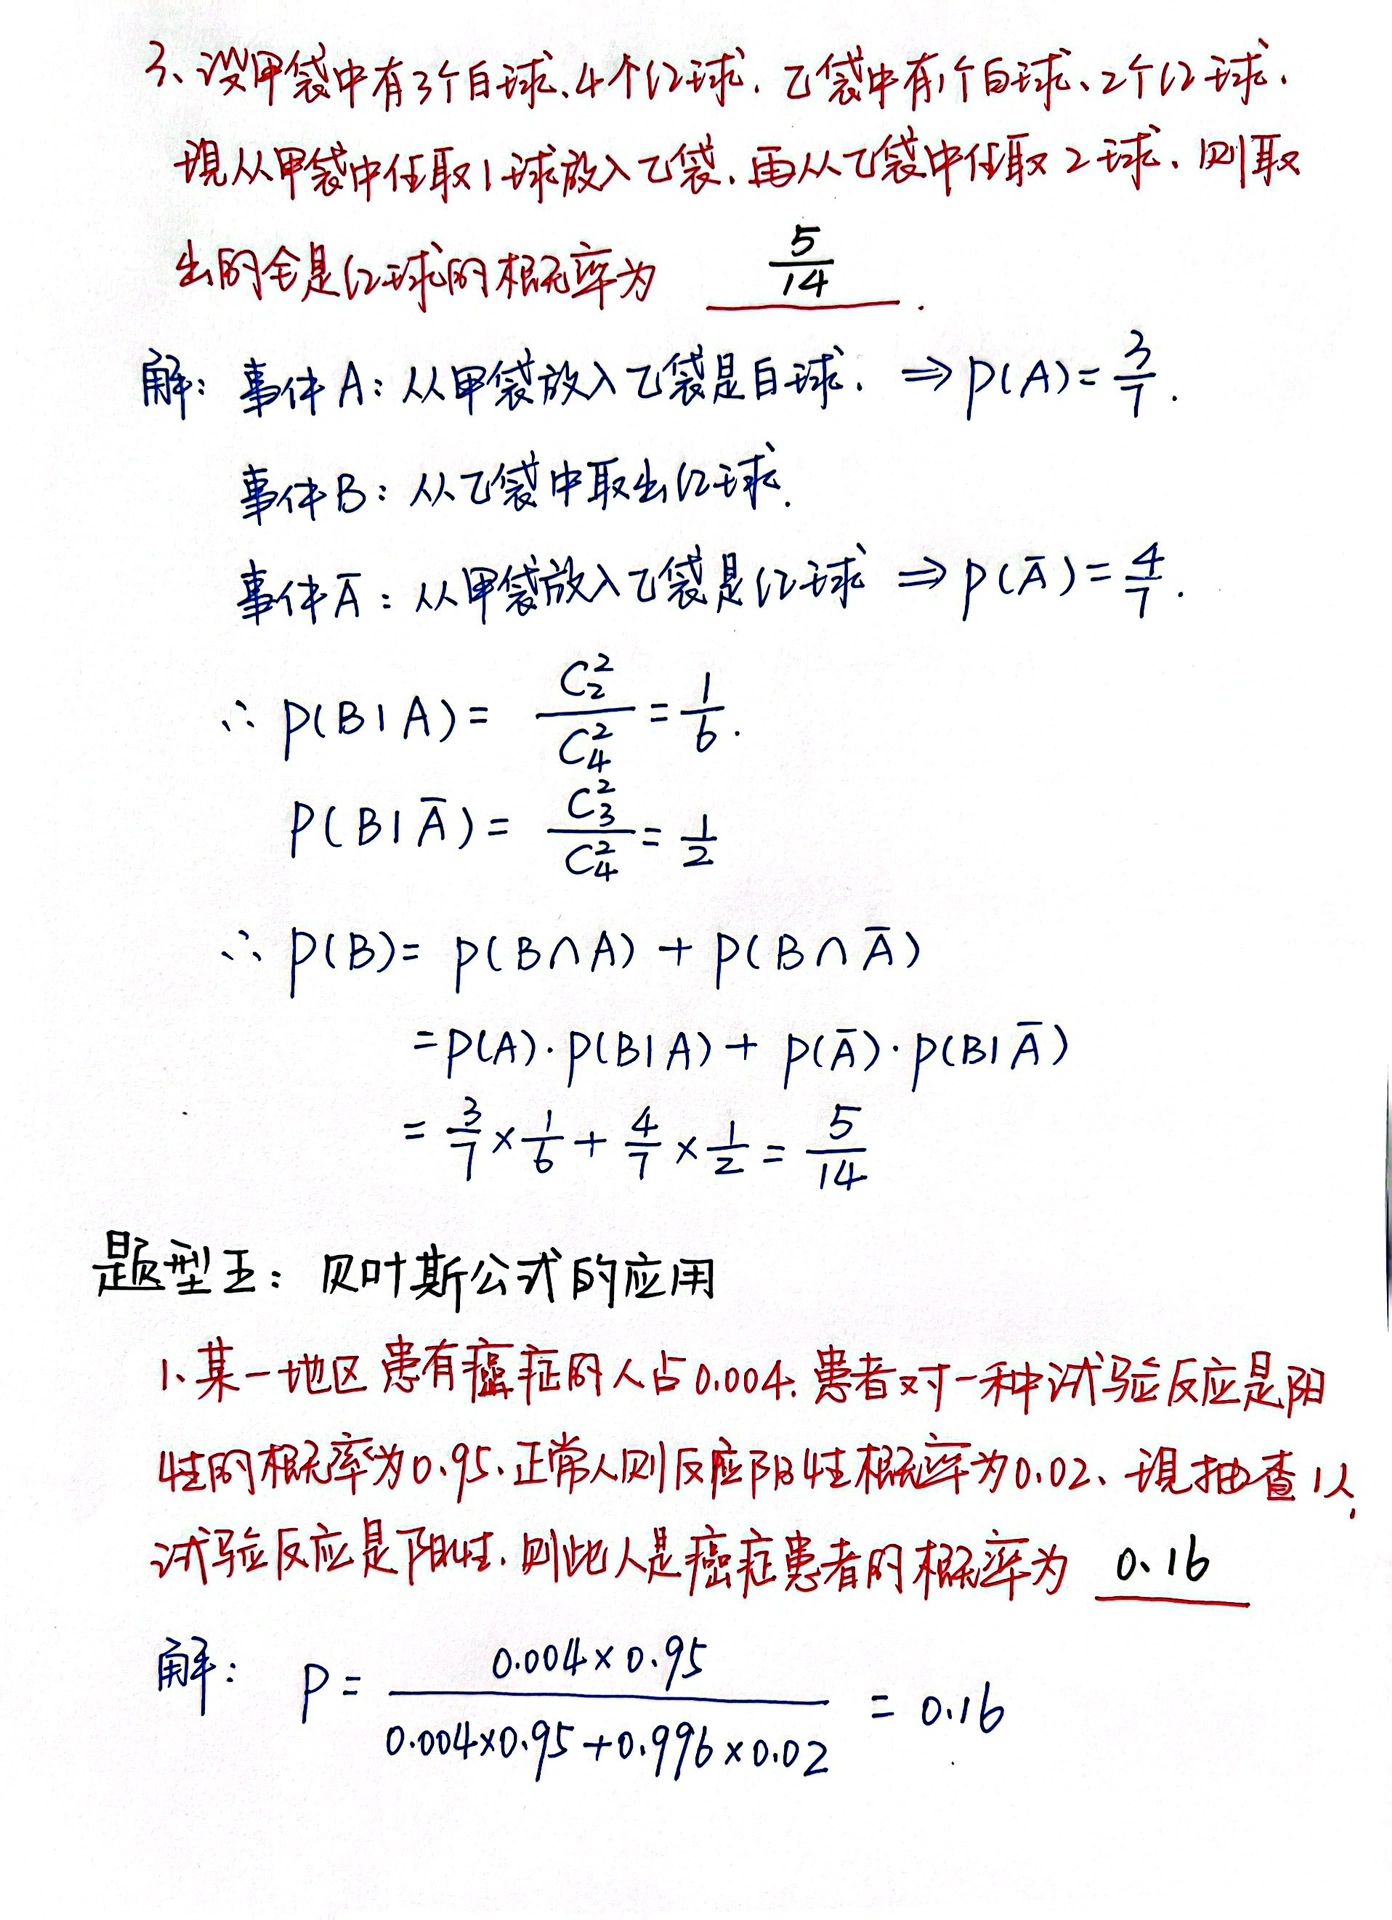 3、设甲袋中有3个白球、4个红球，乙袋中有1个白球、2个红球，
现从甲袋中任取1球放入乙袋，再从乙袋中任取2球，则取
出的全是红球的概率为 5/14 .
解：事件A：从甲袋放入乙袋是白球. ⇒ P(A)=3/7.
事件B：从乙袋中取出红球.
事件Ā：从甲袋放入乙袋是红球 ⇒ P(Ā)=4/7.
∴ P(B|A)= C₂²/C₄² = 1/6.
P(B|Ā)= C₃²/C₄² = 1/2
∴ P(B)= P(B∩A) + P(B∩Ā)
=P(A)·P(B|A)+ P(Ā)·P(B|Ā)
= 3/7 × 1/6 + 4/7 × 1/2 = 5/14
题型五：贝叶斯公式的应用
1、某一地区患有癌症的人占0.004，患者对一种试验反应是阳
性的概率为0.95，正常人则反应阳性概率为0.02、现抽查1人，
试验反应是阳性，则此人是癌症患者的概率为 0.16
解： P= 0.004×0.95 / 0.004×0.95+0.996×0.02 = 0.16